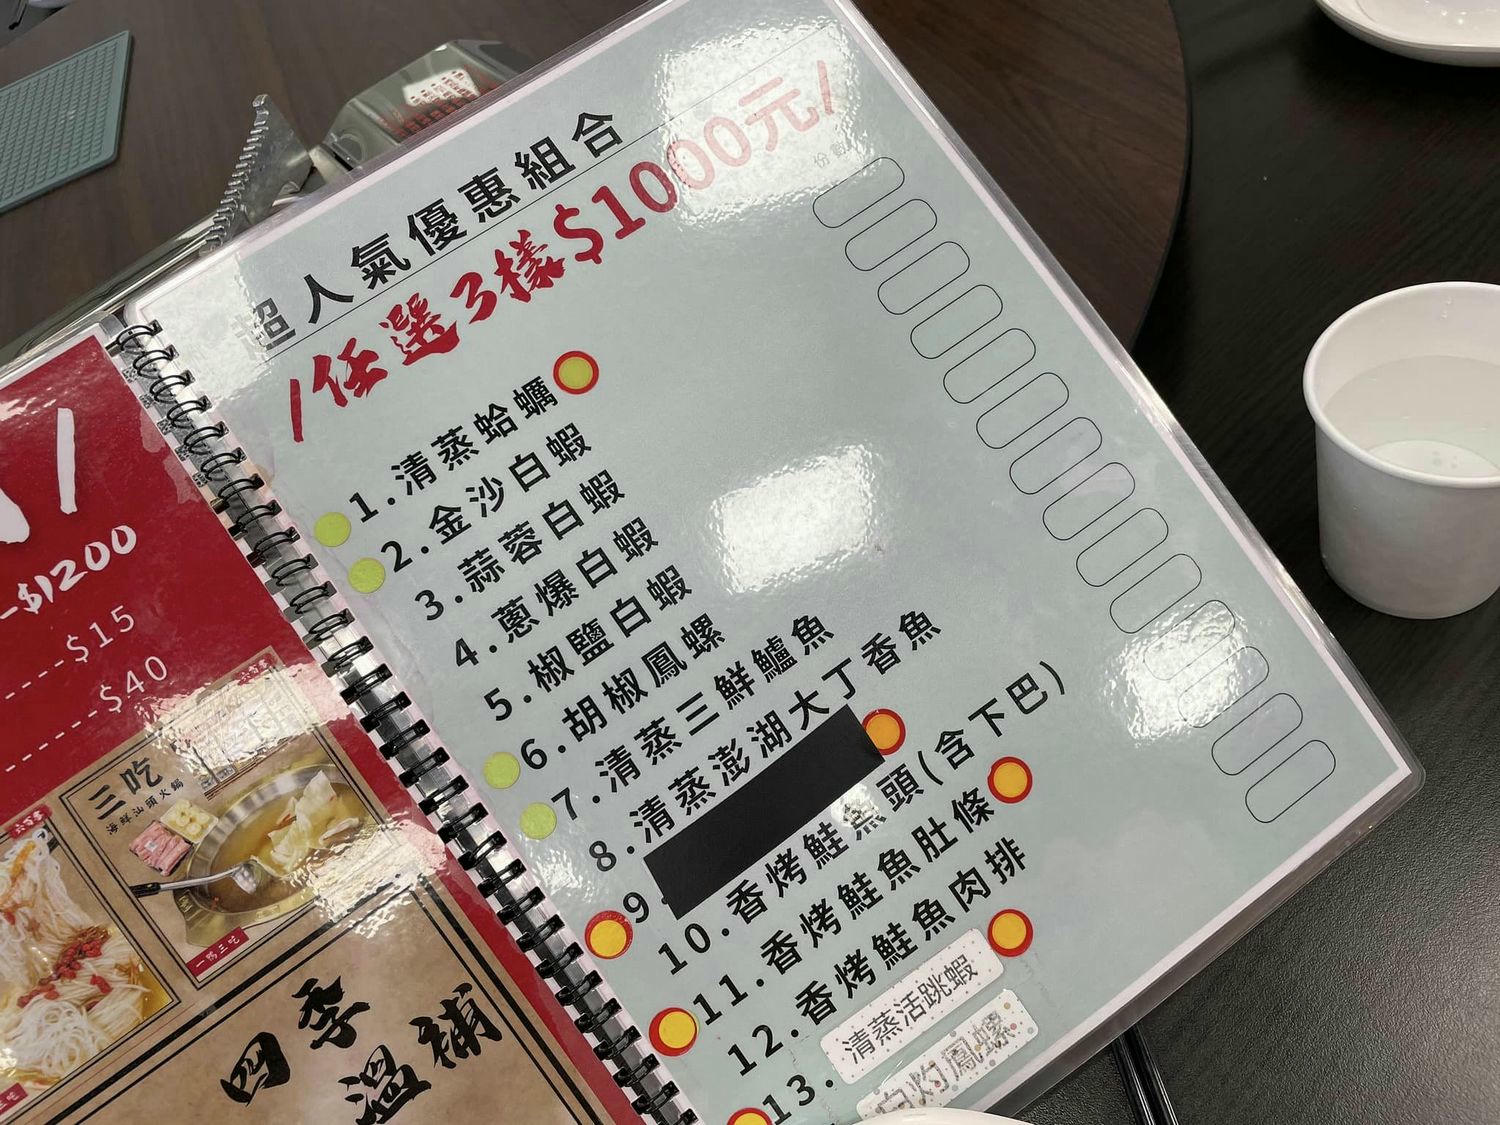 超人氣優惠組合
/任選3樣$1000元/
份數
1.清蒸蛤蠣
2.金沙白蝦
3.蒜蓉白蝦
4.蔥爆白蝦
5.椒鹽白蝦
6.胡椒鳳螺
7.清蒸三鮮鱸魚
8.清蒸澎湖大丁香魚
9.
10.香烤鮭魚頭(含下巴)
11.香烤鮭魚肚條
12.香烤鮭魚肉排
13.清蒸活跳蝦
白灼鳳螺
-$1200
-----$15
------$40
三吃
海鮮汕頭火鍋
一鴨三吃
四季
溫補